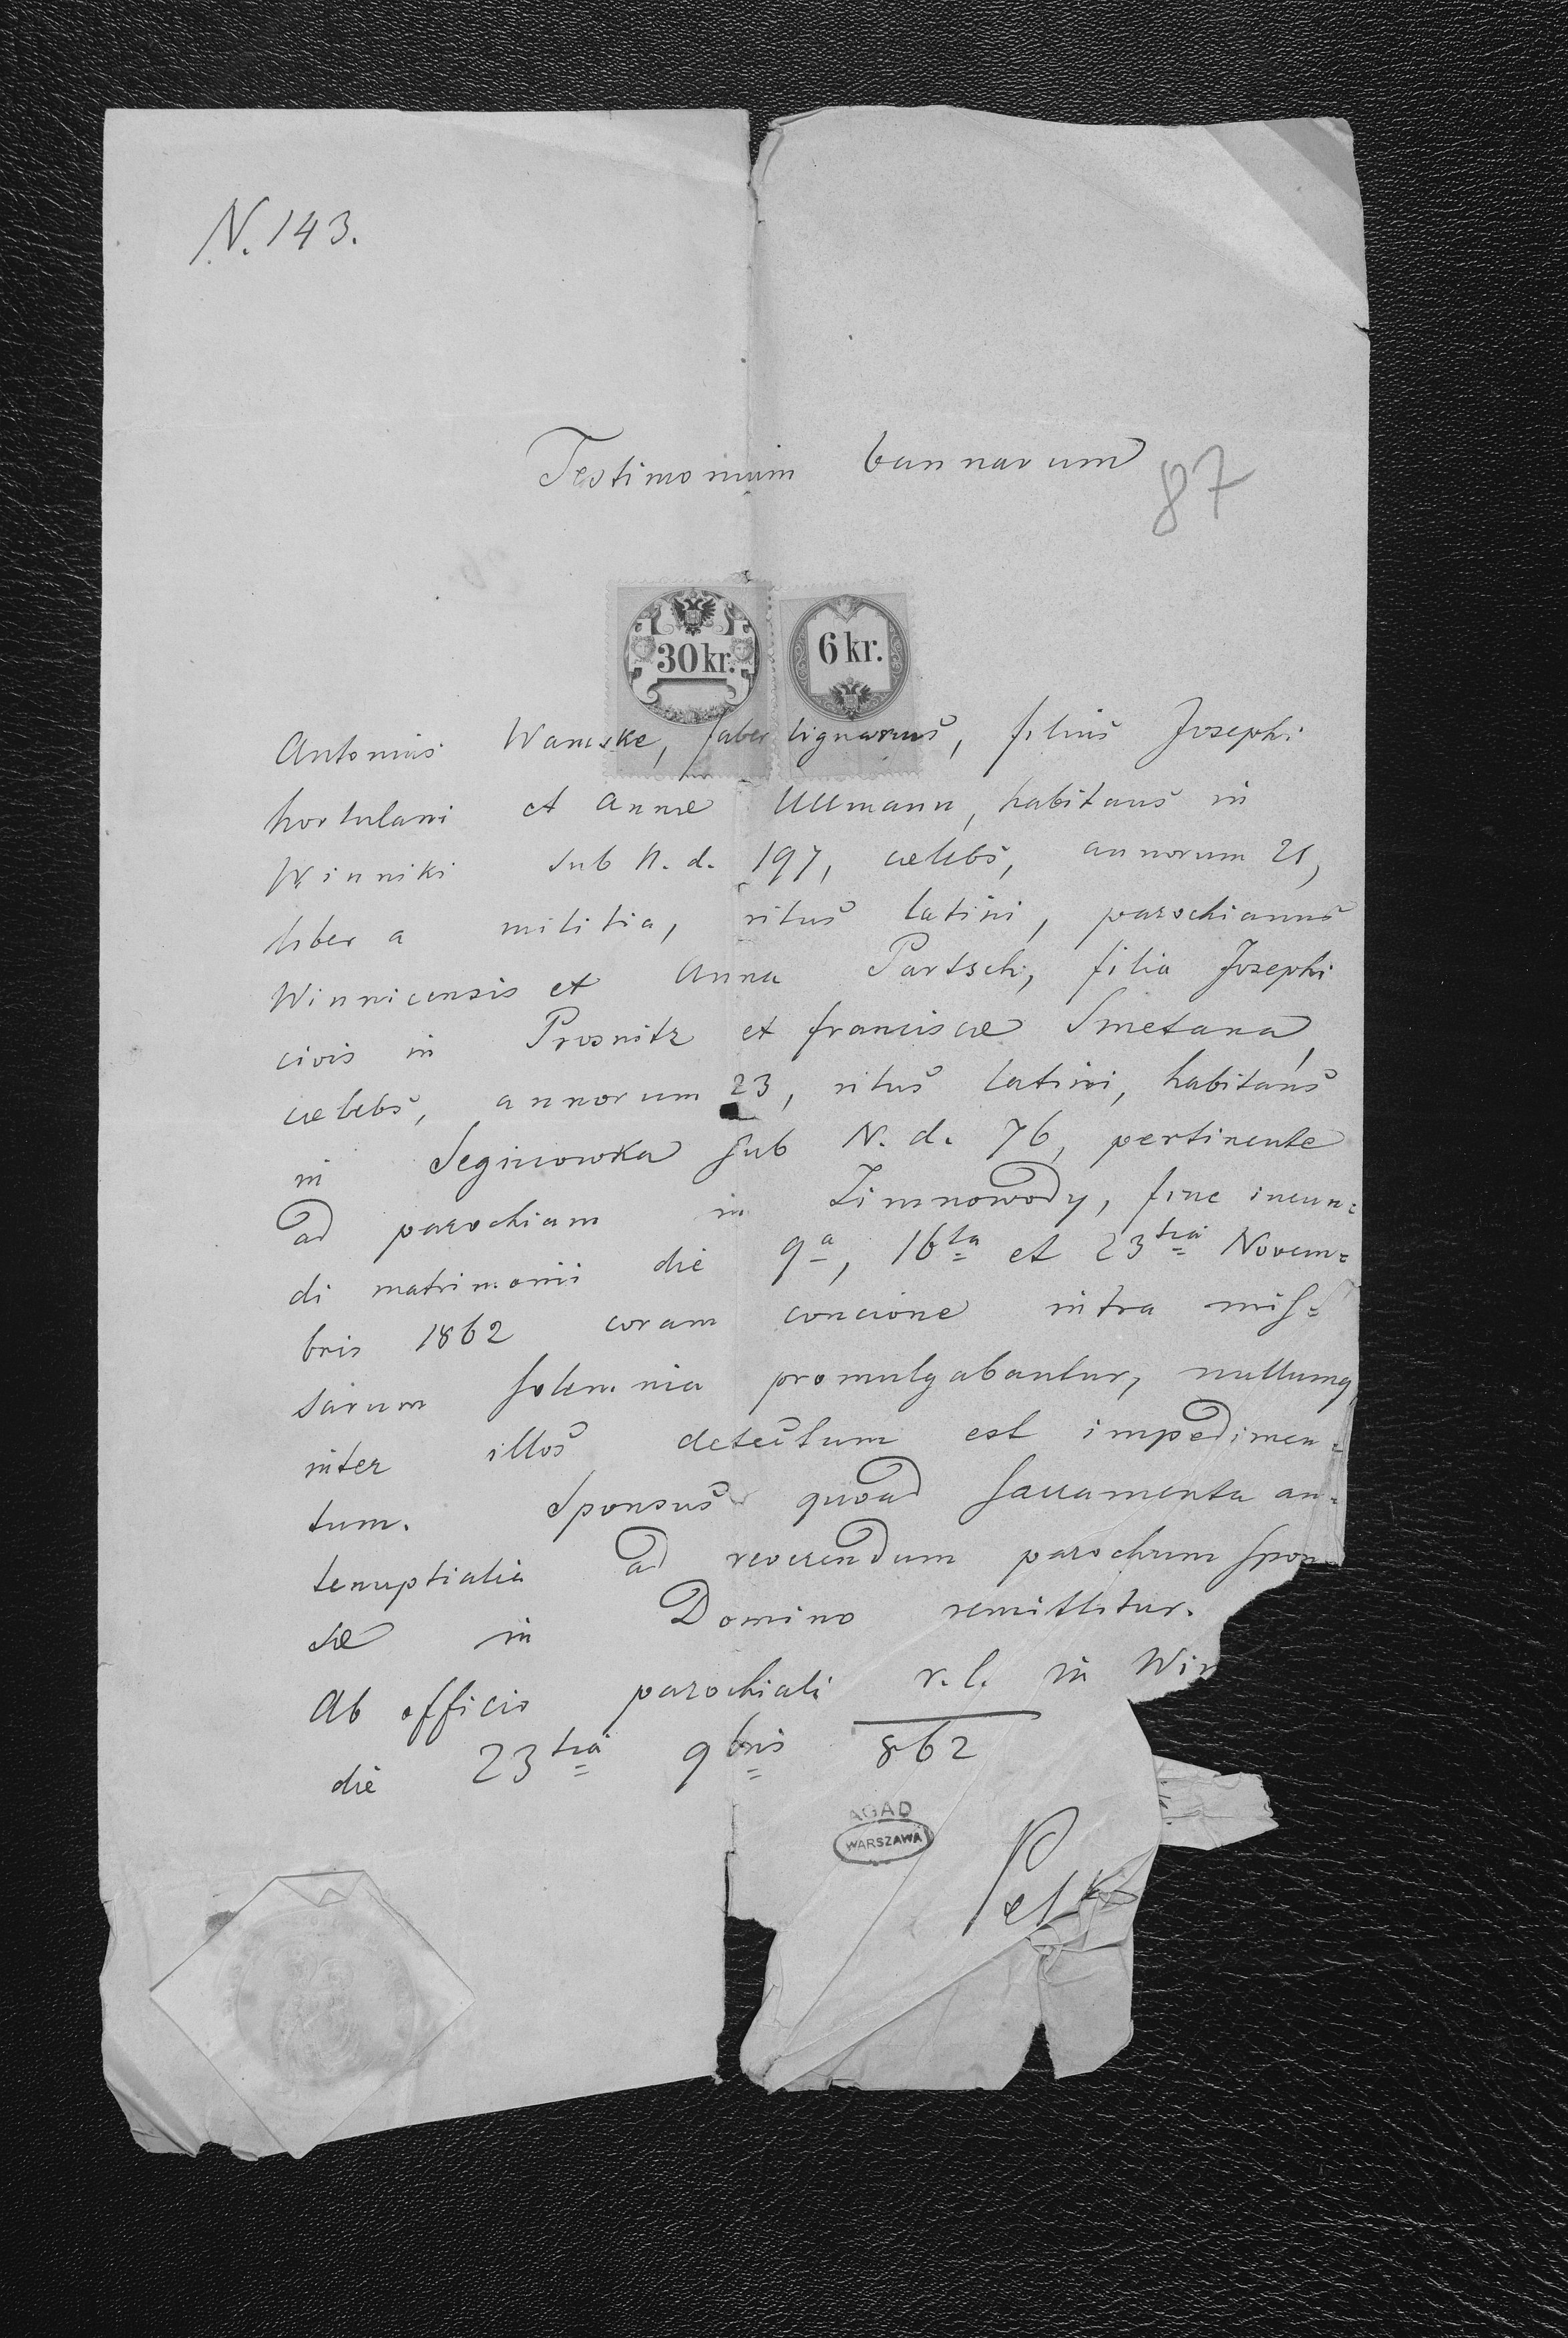 N. 143.
Testimonium bannarum
87
30 kr.
6 kr.
Antonius Wanuske, faber lignarius, filius Josephi
hortulani et Annæ Ullmann, habitans in
Winniki sub N. d. 197, cælebs, annorum 21,
liber a militia, ritus latini, parochianus
Winnicensis et Anna Partsch, filia Josephi
civis in Prosnitz et franciscæ Smetana,
cælebs, annorum 23, ritus latini, habitans
in sub N. d. 76, pertinente
ad parochiam in Zimnowody, fine ineun=
di matrimonii die 9a, 16ta et 23tia Novem=
bris 1862 coram concione intra mis=
sarum solemnia promulgabantur, nullumq
inter illos detectum est impedimen=
tum. Sponsus quoad sacramenta an=
tenuptialia ad reverendum parochum spon
sæ in Domino remittitur.
Ab officio parochiali r. l. in Win
die 23tia 9bris 862
AGAD
WARSZAWA